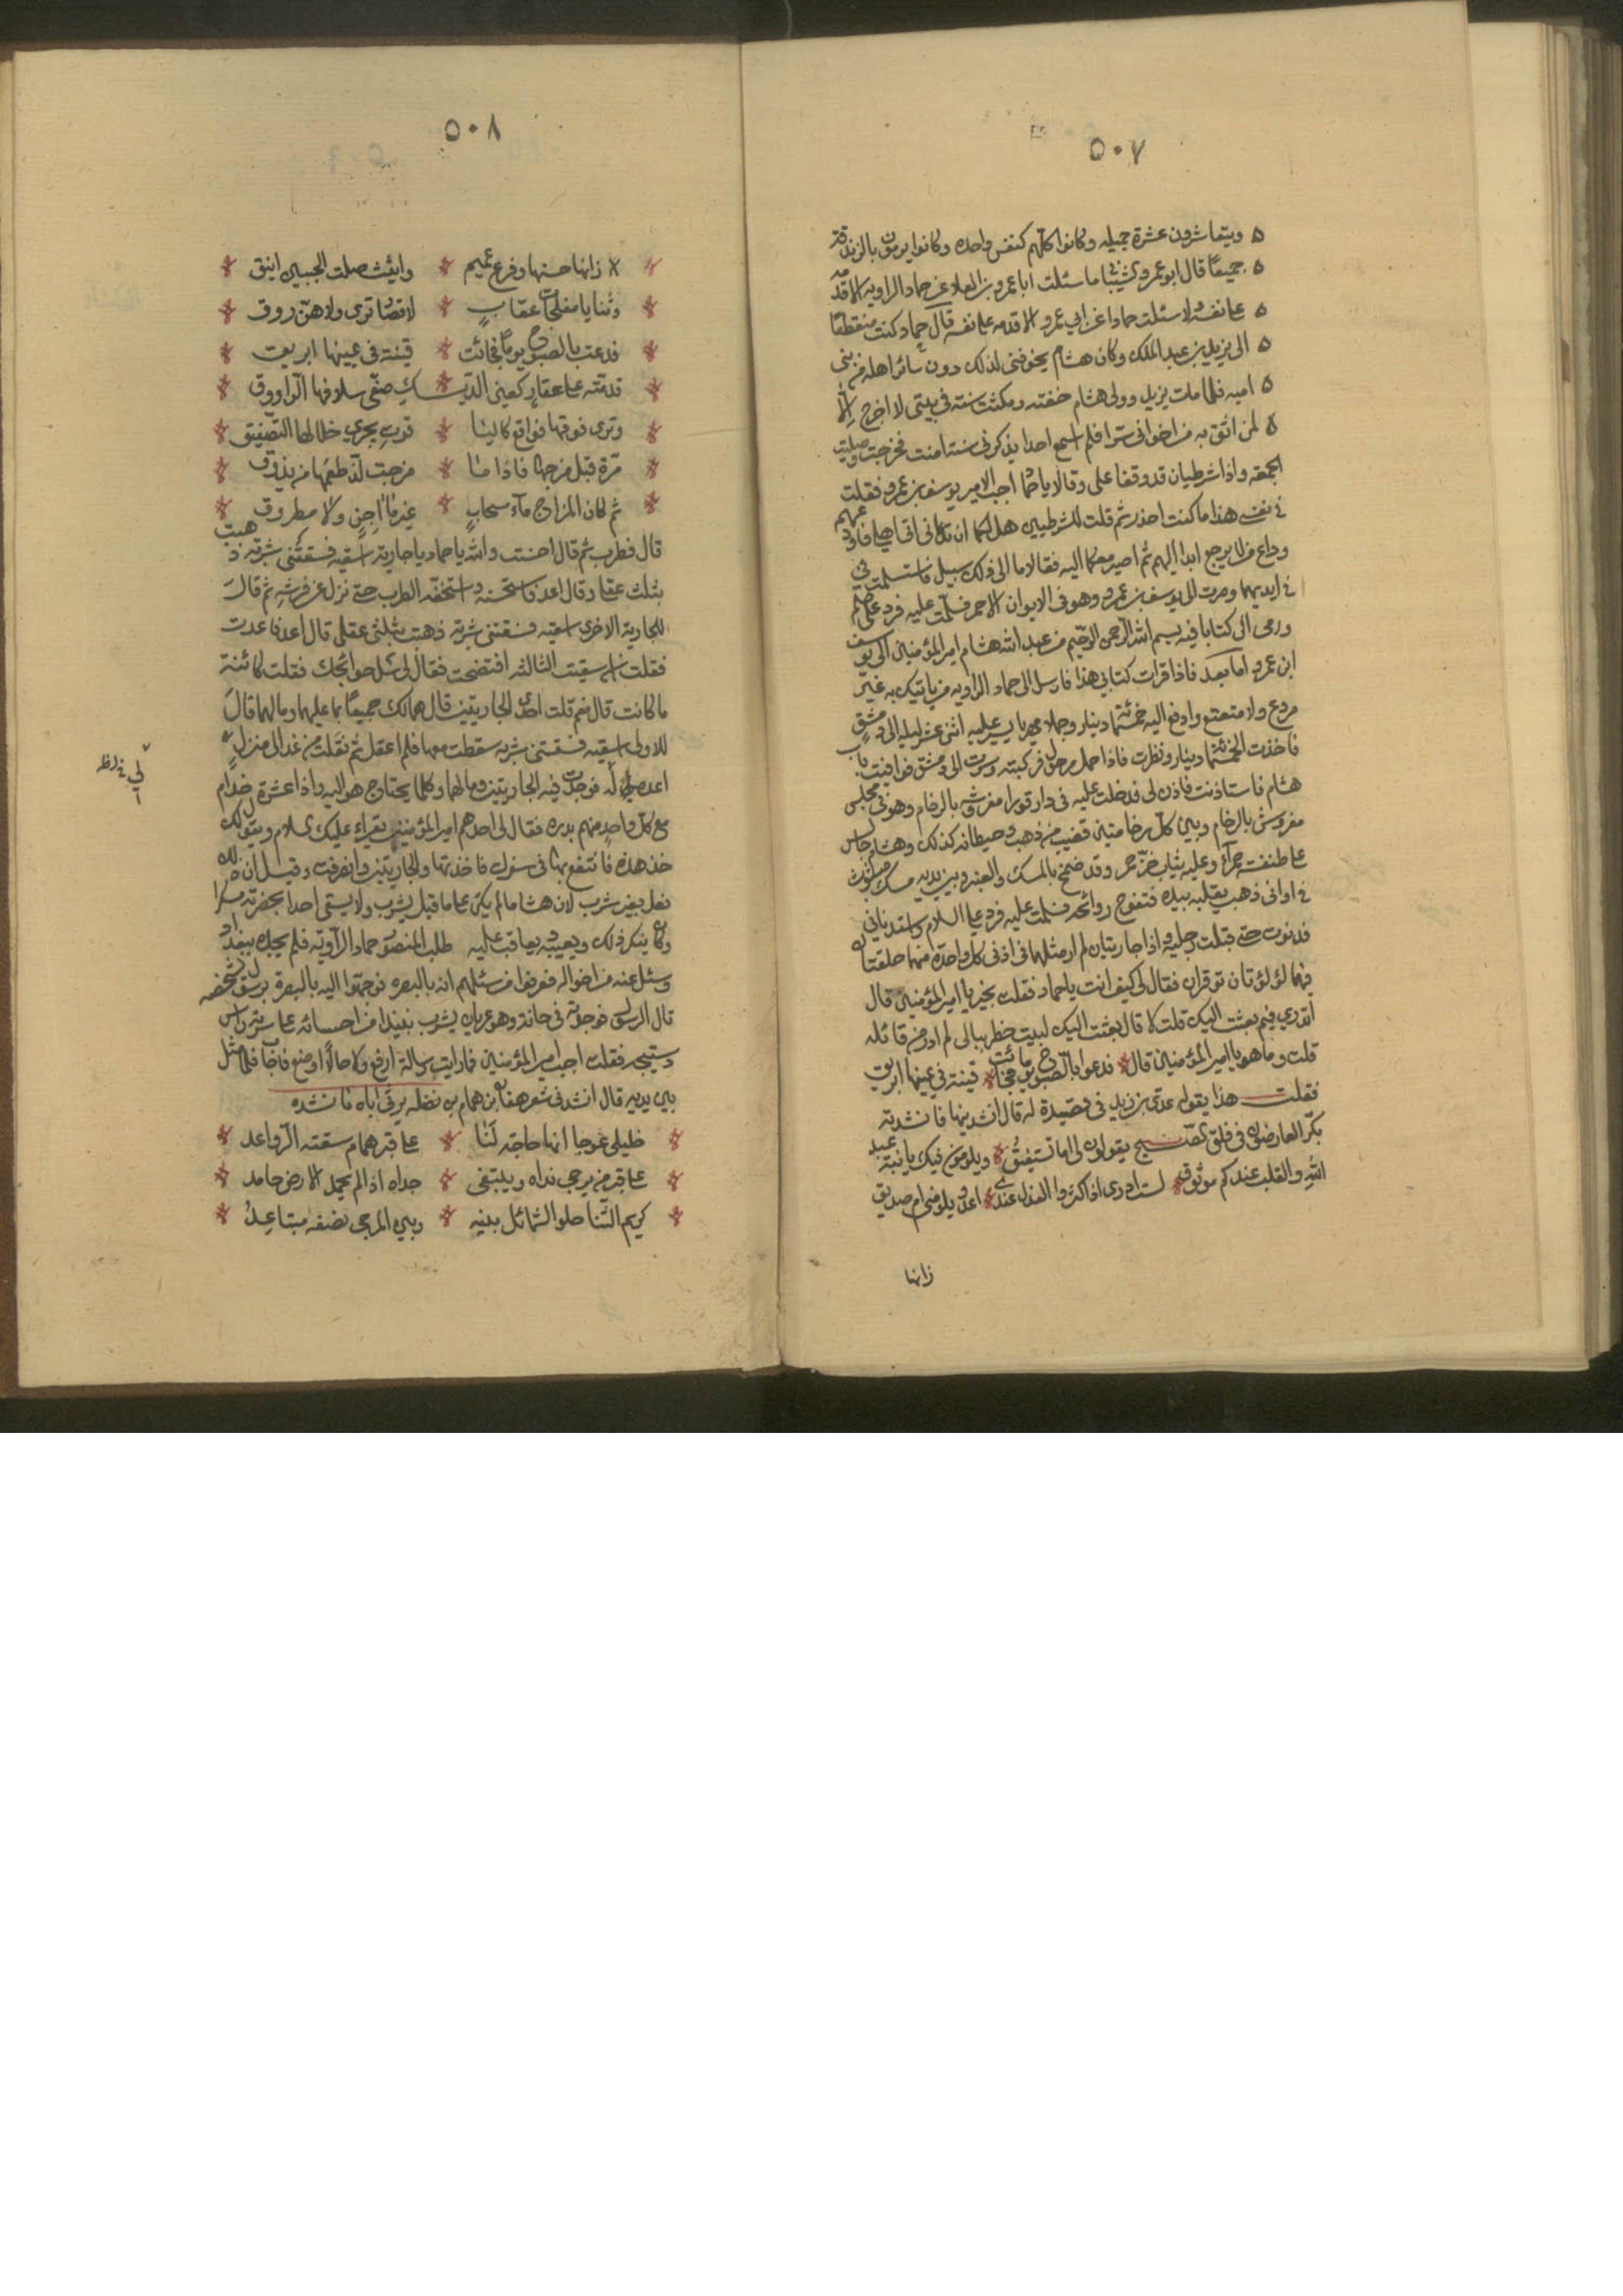 ٥٠٧
ويتعاشرون عشرة جميله وكانوا كلهم كنفس واحده وكانوا يرمون بالزندقة
جميعًا قال ابو عمرو الشيباني ما سئلت ابا عمرو بن العلاء عن حماد الراويه الا قدمه
على نفسه ولا سئلت حمادا عن ابي عمرو الا قدمه على نفسه قال حماد كنت منقطعًا
الى يزيد بن عبد الملك وكان هشام يجفوفنى لذلك دون سائر اهله من بنى
اميه فلما مات يزيد وولى هشام خفته ومكثت سنة في بيتى لا اخرج الا
لمن اثق به من اخوانى سرا فلم اسمع احدا يذكرنى سنة امنت فخرجت وصليت
الجمعه واذا شرطيان قد وقفا على وقالا يا حماد اجب الامير يوسف بن عمرو فقلت
في نفسى هذا ما كنت احذر ثم قلت للشرطيين هل لكما ان تدعانى اتى اهلى فاودعهم
وداع من لا يرجع ابدا اليهم ثم اصير معكما اليه فقالا ما الى ذلك سبيل فاستسلمت
في ايديهما وصرت الى يوسف بن عمرو وهو فى الايوان الاحمر فسلمت عليه فرد على السلام
ورمى الى كتابا فيه بسم الله الرحمن الرحيم من عبد الله هشام امير المؤمنين الى يوسف
ابن عمرو اما بعد فاذا قرات كتابى هذا فارسل الى حماد الراويه من ياتيك به غير
مروع ولا متعتع وادفع اليه خمسمائة دينار وجملا مهريا يسير عليه اثنى عشر ليله الى دمشق
فاخذت الخمسمائة دينار ونظرت فاذا جمل مرحول فركبته وسرت الى دمشق فوافيت باب
هشام فاستاذنت فاذن لى فدخلت عليه فى دار قورا مفروشه بالرخام وهو فى مجلس
مفروش بالرخام وبين كل رخامتين قضيب من ذهب وحيطانه كذلك وهشام جالس
على طنفسة حمراء وعليه ثياب خز حمر وقد ضمخ بالمسك والعنبر وبين يديه مسك مفتوت
في اوانى ذهب يقلبه بيده فتفوح روائحه فسلمت عليه فرد على السلام واستدنانى
فدنوت حتى قبلت رجليه واذا جاريتان لم ار مثلهما فى اذنى كل واحدة منهما حلقتان
فيهما لؤلؤتان توقدان فقال لى كيف انت يا حماد فقلت بخير يا امير المؤمنين قال
اتدري فيم بعثت اليك قلت لا قال بعثت اليك لبيت خطر ببالى لم ادر من قائله
قلت وما هو يا امير المؤمنين قال فدعوا بالصبوح يوما فجائت قينة في يمينها ابريق
فقلت هذا يقوله عدى بن زيد فى قصيدة له قال انشدنيها فانشدته
بكر العاذلون فى فلق الصبح يقولون لى اما تستفيق ويلومون فيك يا ابنة عبد
الله والقلب عندكم موثوق لست ادرى اذ اكثروا العذل عندى اعدو يلومنى ام صديق
زانها
٥٠٨
زانها حسنها وفرع عميم وابيث صلت الجبين انيق
وثنايا مفلجات عذاب لا قصار ترى ولا هن روق
فدعت بالصبوح يوما فجائت قينة فى يمينها ابريق
قدمته على عقار كعين الديك صفى سلافها الراووق
وترى فوقها فواقع كاليا قوت يجري خلالها التصفيق
مرة قبل مزجها فاذا ما مزجت لذ طعمها من يذوق
ثم كان المزاج ماء سحاب غير ما آجن ولا مطروق
قال فطرب ثم قال احسنت والله يا حماد يا جارية اسقيه فسقتنى شربة ذهبت
بثلث عقلى وقال اعد فاستحسنه واستخفه الطرب حتى نزل عن فرشه ثم قال
للجارية الاخرى اسقيه فسقتنى شربة ذهبت بثلثى عقلى قال اعد فاعدت
فقلت ان سقيت الثالثه افتضحت فقال لى سل حوائجك فقلت كائنة
ما كانت قال نعم قلت احدى الجاريتين قال هما لك جميعًا بما عليهما وما لهما قال
للاولى اسقيه فسقتنى شربه سقطت معها فلم اعقل ثم نقلت من غد الى منزل
اعد لى فوجدت فيه الجاريتين وما لهما وكلما يحتاج هو اليه واذا عشرة خدام
مع كل واحد منهم بدره فقال لى احدهم امير المؤمنين يقراء عليك السلام ويقول لك
خذ هذه فانتفع بها فى سفرك فاخذتها والجاريتين وانصرفت وقيل ان ذلك
فعل بغير شرب لان هشاما لم يكن على ما قيل يشرب ولا يسقى احدا بحضرته مسكرا
وكان ينكر ذلك ويعيبه ويعاقب عليه طلب المنصور حماد الراوية فلم يجده ببغداد
وسئل عنه من اخوانه فعرفوا من سئلهم انه بالبصره فوجهوا اليه بالبصرة برسول يشخصه
قال الرسول فوجدته فى حانة وهو عريان يشرب نبيذا من اجسانه على سوته راس
دستيجه فقلت اجب امير المؤمنين فما رايت رسالة ارفع ولا حالاً اوضع فاجاب فلما مثل
بين يديه قال انشدنى شعر هفان بن همام بن نضله يرثى اباه فانشده
خليلى عوجا انها حاجة لنا على قبر همام سقته الرواعد
على قبر من يرجى نداه ويبتغى جداه اذا لم يحمد الارض حامد
كريم الثنا حلو الشمائل بينه وبين المرجى نصفه متباعد